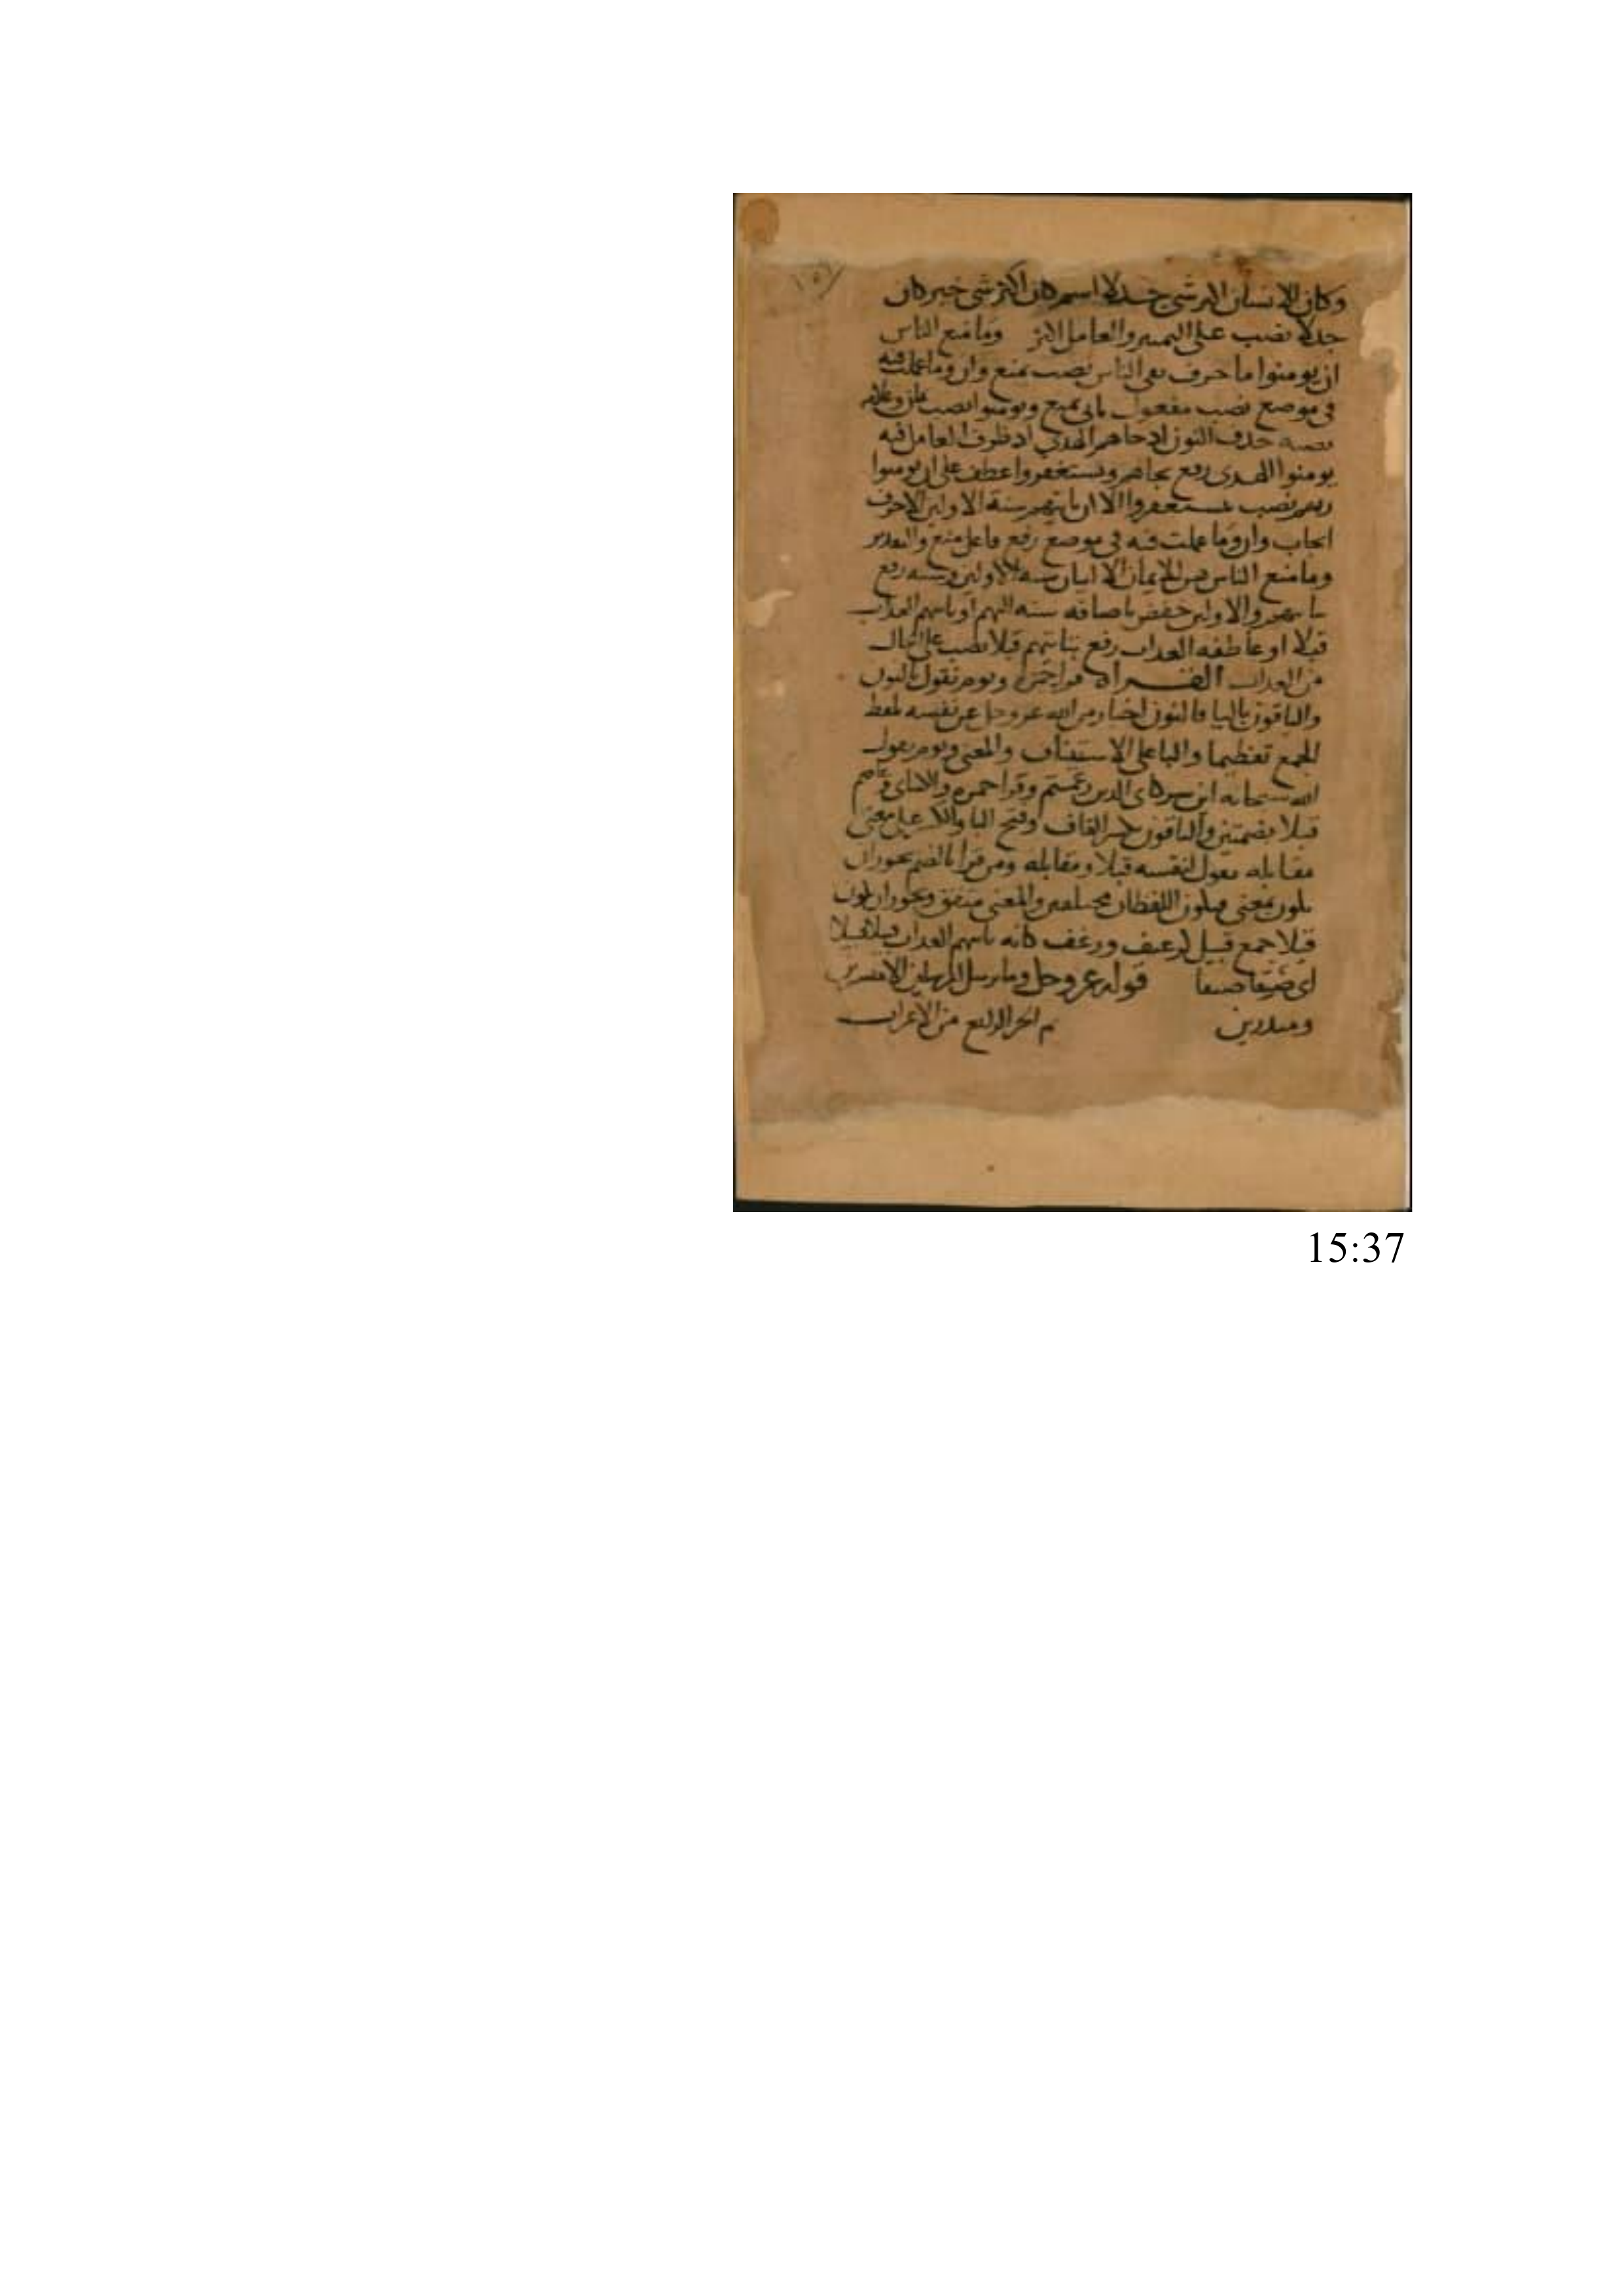 وكان الانسان اكثر شي جدلا اسم كان اكثر شي خبر كان
جدلا نصب على التمييز والعامل اكثر وما منع الناس
ان يومنوا ما حرف نفي الناس نصب بمنع وان وما عملت فيه
في موضع نصب مفعول ثاني بمنع ويومنوا نصب بان وعلامة
نصبه حذف النون اذ جاهم الهدي اذ ظرف العامل فيه
يومنوا الهدى رفع بجاهم ويستغفروا عطف على ان يومنوا
ربهم نصب بيستغفروا الا ان تاتيهم سنة الاولين الا حرف
ايجاب وان وما عملت فيه في موضع رفع فاعل منع والتقدير
وما منع الناس من الايمان الا اتيان سنه الاولين وسنه رفع
بتاتيهم والاولين خفض باضافه سنه اليهم او ياتيهم العذاب
قبلا او عاطفه العذاب رفع بياتيهم قبلا نصب على الحال
من العذاب القراه قرا حمزه ويوم نقول بالنون
والباقون باليا فالنون اخبار من الله عز وجل عن نفسه بلفظ
الجمع تعظيما واليا على الاستيناف والمعنى ويوم يقول
الله سبحانه اين شركاى الذين زعمتم وقرا حمزه والكساي وعاصم
قبلا بضمتين والباقون بكسر القاف وفتح البا والكسر على معنى
مقابله يقول لنفسه قبلا ومقابله ومن قرا بالضم يجوز ان
يكون بمعنى فيكون اللفظان مختلفين والمعنى متفق ويجوز ان يكون
قبلا جمع قبيل كرغيف ورغف كانه ياتيهم العذاب قبيلا قبيلا
اى صنفا صنفا قوله عز وجل وما نرسل المرسلين الا مبشرين
ومنذرين تم الجز الرابع من الاعراب
15:37